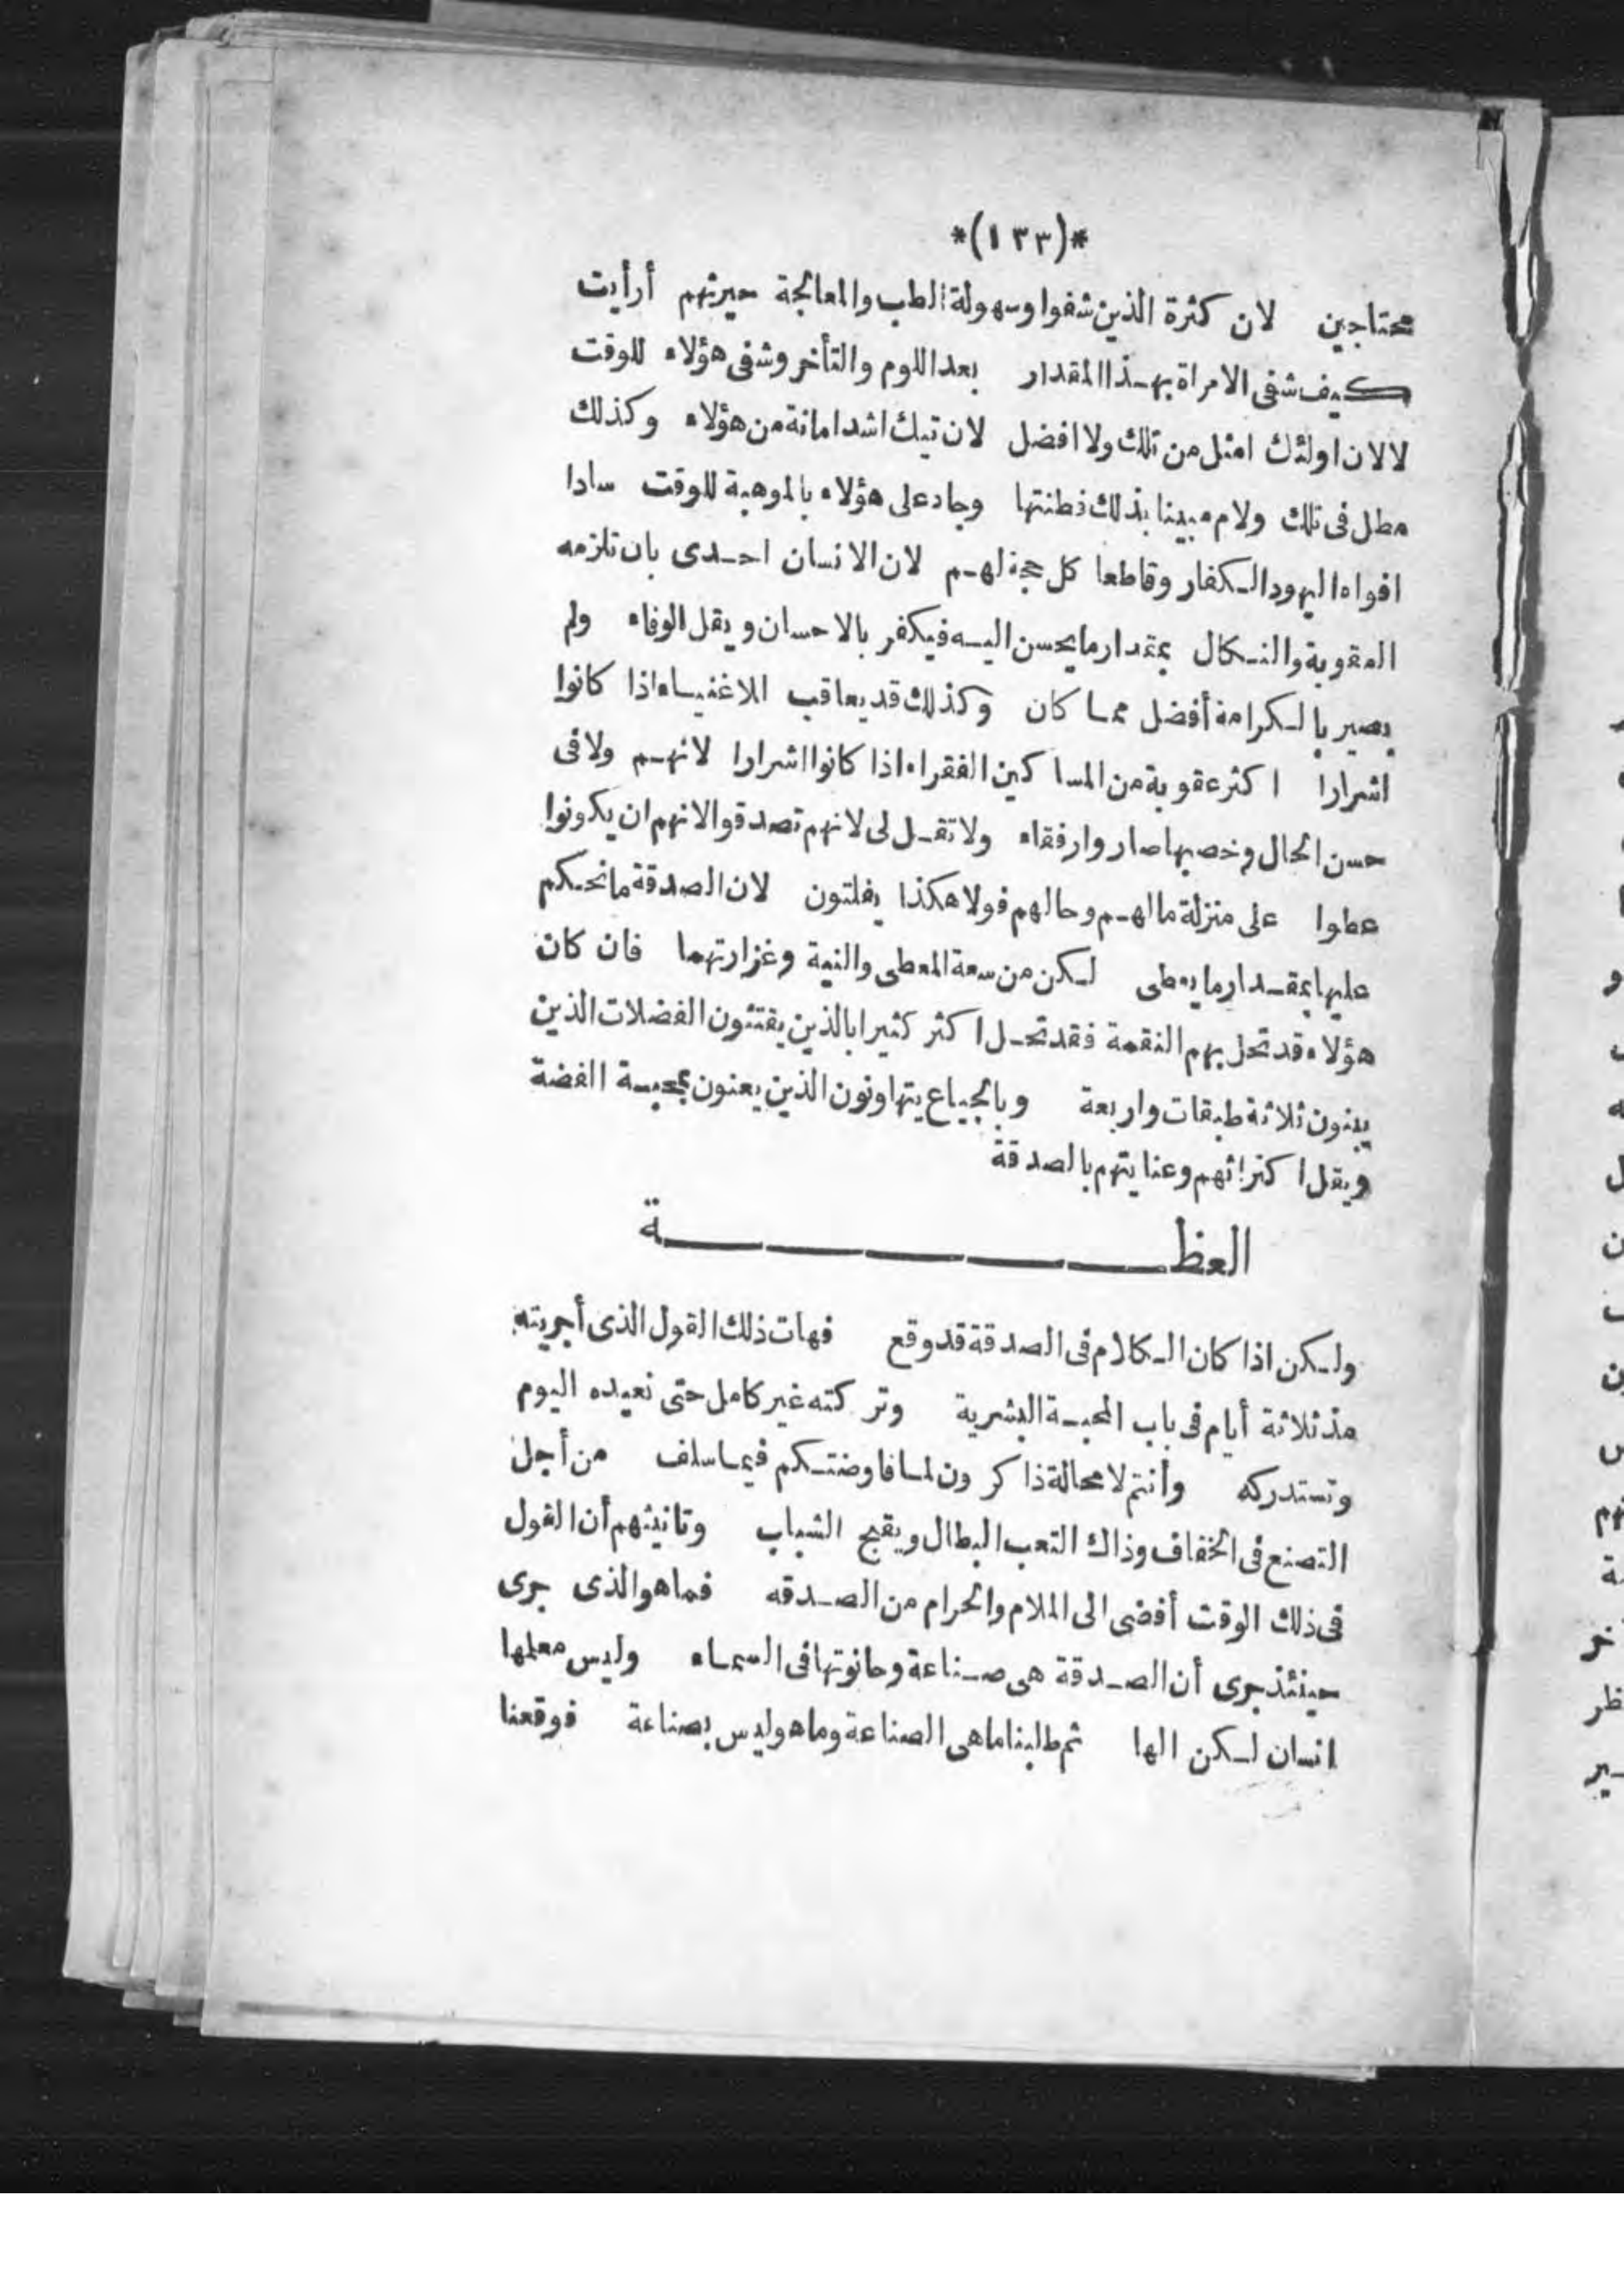 *(١٣٣)*
محتاجين لان كثرة الذين شفوا وسهولة الطب والمعالجة حيرتهم أرأيت
كيف شفى الامراة بهذا المقدار بعد اللوم والتأخر وشفى هؤلاء للوقت
لا لان اولئك امثل من تلك ولا افضل لان تيك اشد امانة من هؤلاء وكذلك
مطل فى تلك ولام مبينا بذلك فطنتها وجاد على هؤلاء بالموهبة للوقت سادا
افواه اليهود الكفار وقاطعا كل حجة لهم لان الانسان احدى بان تلزمه
العقوبة والنكال بمقدار ما يحسن اليه فيكفر بالاحسان ويقل الوفاء ولم
يصير بالكرامة أفضل مما كان وكذلك قد يعاقب الاغنياء اذا كانوا
اشرارا اكثر عقوبة من المساكين الفقراء اذا كانوا اشرارا لانهم ولا فى
حسن الحال وخصبها صاروا رفقاء ولا تقل لى لانهم تصدقوا لانهم ان يكونوا
عطوا على منزلة مالهم وحالهم فولا هكذا يفلتون لان الصدقة ما نحكم
عليها بمقدار ما يعطى لكن من سعة المعطى والنية وغزارتهما فان كان
هؤلاء قد تحل بهم النقمة فقد تحل اكثر كثيرا بالذين يقتنون الفضلات الذين
يبنون ثلاثة طبقات واربعة وبالجياع يتهاونون الذين يعنون بمحبة الفضة
ويقل اكتراثهم وعنايتهم بالصدقة
العظـــــة
ولكن اذا كان الكلام فى الصدقة قد وقع فهات ذلك القول الذى أجريته
مذ ثلاثة أيام فى باب المحبة البشرية وتركته غير كامل حتى نعيده اليوم
وتستدركه وأنتم لا محالة ذاكرون لما فاوضتكم فيما سلف من أجل
التصنع فى الخفاف وذاك التعب البطال ويقبح الشباب وتانيثهم أن القول
فى ذلك الوقت أفضى الى الملام والحرام من الصدقه فما هو الذى جرى
حينئذ جرى أن الصدقة هى صناعة وحانوتها فى السماء وليس معلمها
انسان لكن الها ثم طلبنا ما هى الصناعة وما هو ليس بصناعة فوقعنا